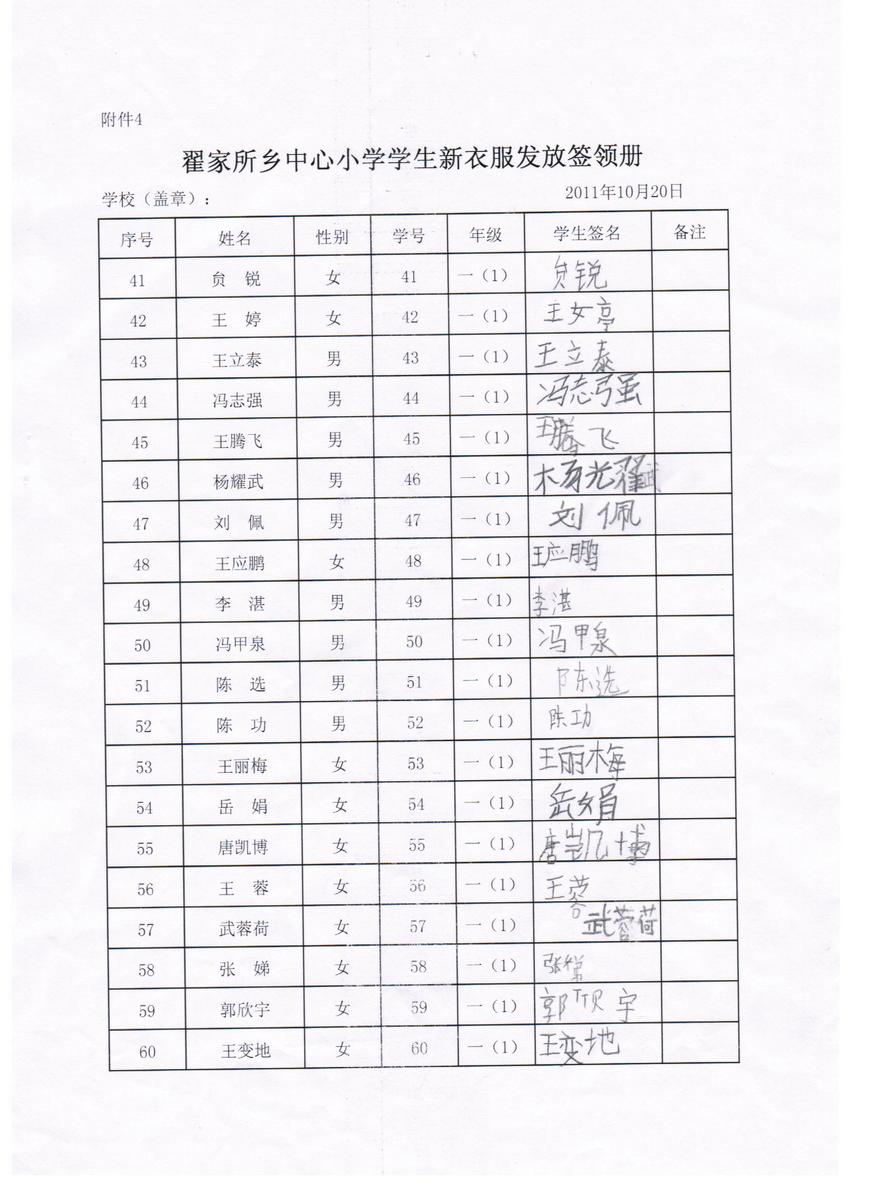 附件4
翟家所乡中心小学学生新衣服发放签领册
学校（盖章）： 2011年10月20日
序号 姓名 性别 学号 年级 学生签名 备注
41 贠 锐 女 41 一（1） 贠锐
42 王 婷 女 42 一（1） 王婷
43 王立泰 男 43 一（1） 王立泰
44 冯志强 男 44 一（1） 冯志强
45 王腾飞 男 45 一（1） 王腾飞
46 杨耀武 男 46 一（1） 杨耀武
47 刘 佩 男 47 一（1） 刘佩
48 王应鹏 女 48 一（1） 王应鹏
49 李 湛 男 49 一（1） 李湛
50 冯甲泉 男 50 一（1） 冯甲泉
51 陈 选 男 51 一（1） 陈选
52 陈 功 男 52 一（1） 陈功
53 王丽梅 女 53 一（1） 王丽梅
54 岳 娟 女 54 一（1） 岳娟
55 唐凯博 女 55 一（1） 唐凯博
56 王 蓉 女 56 一（1） 王蓉
57 武蓉荷 女 57 一（1） 武蓉荷
58 张 娣 女 58 一（1） 张娣
59 郭欣宇 女 59 一（1） 郭欣宇
60 王变地 女 60 一（1） 王变地